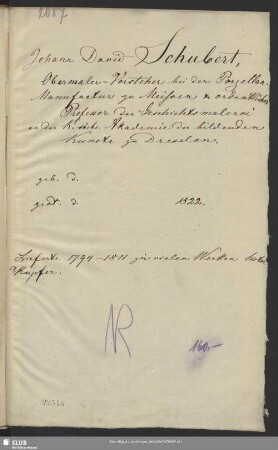 2087.
Johann David Schubert,
Obermaler-Vorsteher bei der Porzellan-
Manufactur zu Meissen & ordentlicher
Professor der Geschichtsmalerei
an der K. sächs. Akademie der bildenden
Künste zu Dresden.
geb. d.
gest. d. 1822.
Lieferte 1794–1811 zu vielen Werken
Kupfer.
NR
160,-
SLUB